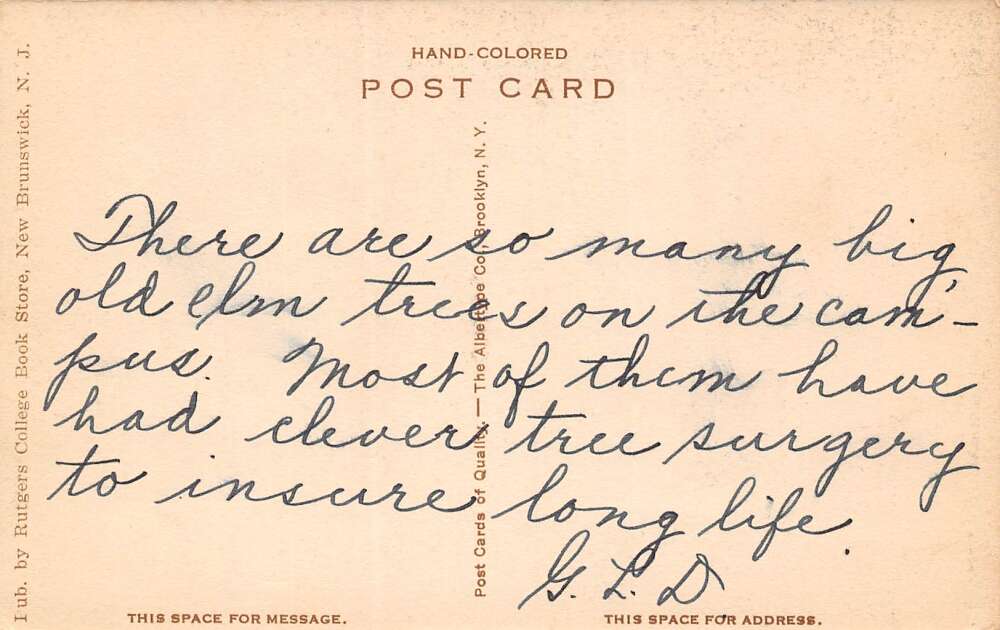 HAND-COLORED
POST CARD
Pub. by Rutgers College Book Store, New Brunswick, N. J.
Post Cards of Quality. — The Albertype Co., Brooklyn, N. Y.
There are so many big,
old elm trees on the cam-
pus. Most of them have
had clever tree surgery
to insure long life.
G. L. D.
THIS SPACE FOR MESSAGE.
THIS SPACE FOR ADDRESS.